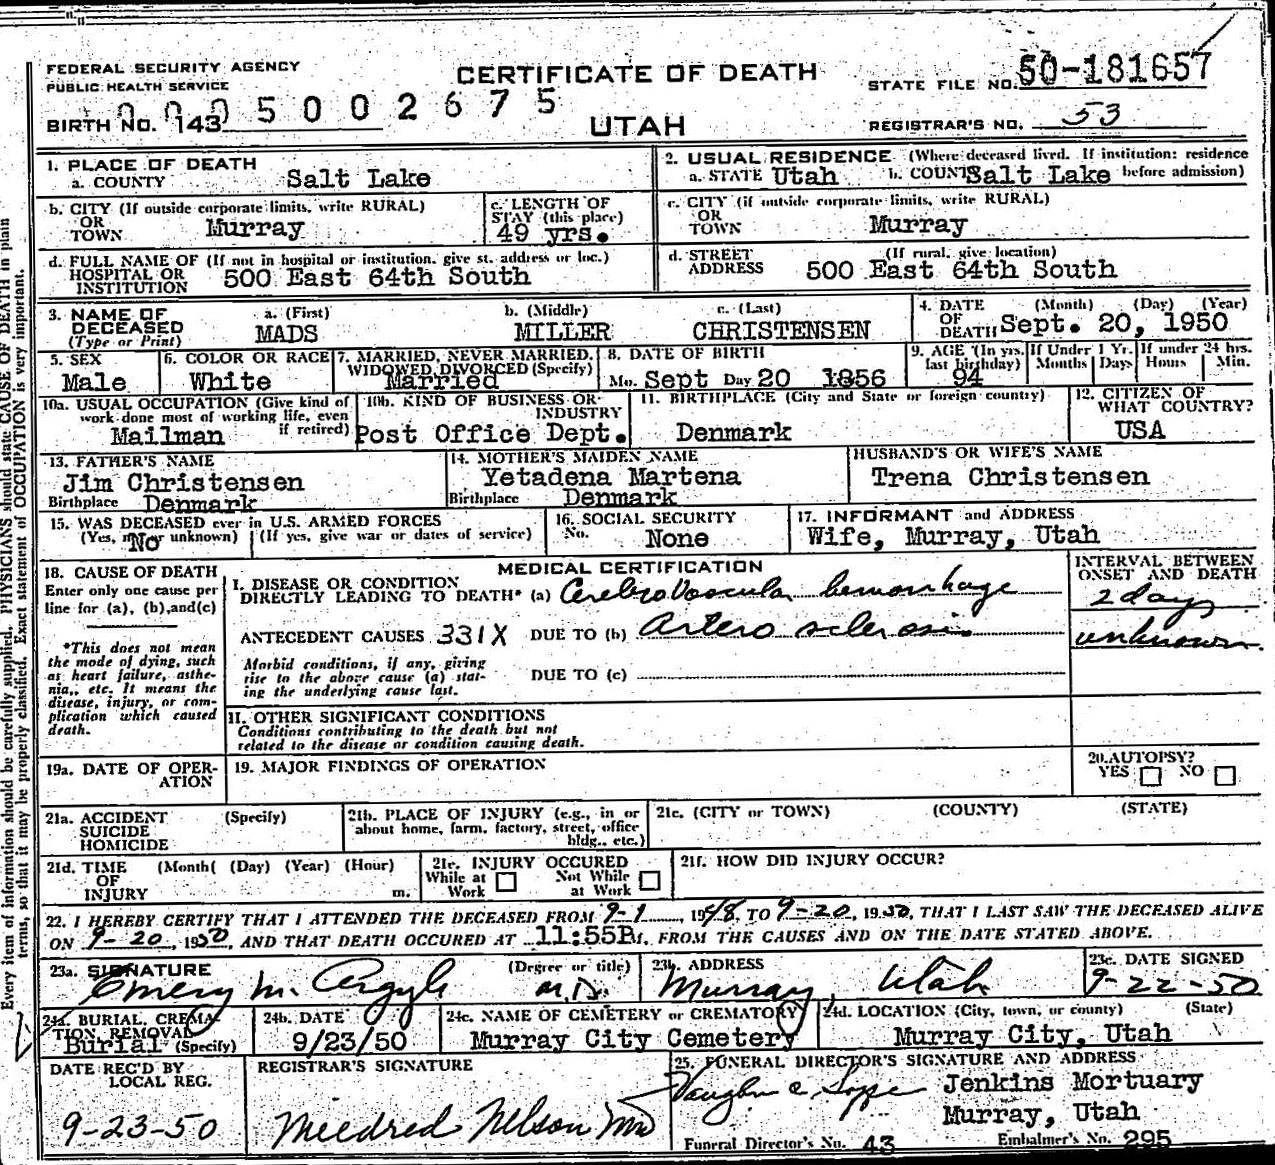 FEDERAL SECURITY AGENCY
PUBLIC HEALTH SERVICE
CERTIFICATE OF DEATH
STATE FILE NO. 50-181657
0005002675
BIRTH NO. 143
UTAH
REGISTRAR'S NO. 53
1. PLACE OF DEATH
a. COUNTY Salt Lake
2. USUAL RESIDENCE (Where deceased lived. If institution: residence before admission)
a. STATE Utah b. COUNTY Salt Lake
b. CITY (If outside corporate limits, write RURAL)
OR
TOWN Murray
c. LENGTH OF
STAY (this place)
49 yrs.
c. CITY (if outside corporate limits, write RURAL)
OR
TOWN Murray
d. FULL NAME OF (If not in hospital or institution, give st. address or loc.)
HOSPITAL OR
INSTITUTION 500 East 64th South
d. STREET (If rural, give location)
ADDRESS 500 East 64th South
3. NAME OF
DECEASED
(Type or Print)
a. (First)
MADS
b. (Middle)
MILLER
c. (Last)
CHRISTENSEN
4. DATE (Month) (Day) (Year)
OF
DEATH Sept. 20, 1950
5. SEX
Male
6. COLOR OR RACE
White
7. MARRIED, NEVER MARRIED,
WIDOWED DIVORCED (Specify)
Married
8. DATE OF BIRTH
Mo. Sept Day 20 1856
9. AGE (In yrs.
last birthday)
94
If Under 1 Yr.
Months Days
If under 24 hrs.
Hours Min.
10a. USUAL OCCUPATION (Give kind of
work done most of working life, even
if retired)
Mailman
10b. KIND OF BUSINESS OR
INDUSTRY
Post Office Dept.
11. BIRTHPLACE (City and State or foreign country)
Denmark
12. CITIZEN OF
WHAT COUNTRY?
USA
13. FATHER'S NAME
Jim Christensen
Birthplace Denmark
14. MOTHER'S MAIDEN NAME
Yetadena Martena
Birthplace Denmark
HUSBAND'S OR WIFE'S NAME
Trena Christensen
15. WAS DECEASED ever in U.S. ARMED FORCES
(Yes, no or unknown) (If yes, give war or dates of service)
No
16. SOCIAL SECURITY
No. None
17. INFORMANT and ADDRESS
Wife, Murray, Utah
18. CAUSE OF DEATH
Enter only one cause per
line for (a), (b), and (c)
*This does not mean
the mode of dying, such
as heart failure, asthe-
nia,, etc. It means the
disease, injury, or com-
plication which caused
death.
MEDICAL CERTIFICATION
I. DISEASE OR CONDITION
DIRECTLY LEADING TO DEATH* (a) Cerebro Vascular hemorrhage
ANTECEDENT CAUSES 331X DUE TO (b) Artero sclerosis
Morbid conditions, if any, giving
rise to the above cause (a) stat-
ing the underlying cause last.
DUE TO (c)
INTERVAL BETWEEN
ONSET AND DEATH
2 days
unknown
II. OTHER SIGNIFICANT CONDITIONS
Conditions contributing to the death but not
related to the disease or condition causing death.
19a. DATE OF OPER-
ATION
19. MAJOR FINDINGS OF OPERATION
20. AUTOPSY?
YES NO
21a. ACCIDENT (Specify)
SUICIDE
HOMICIDE
21b. PLACE OF INJURY (e.g., in or
about home, farm, factory, street, office
bldg., etc.)
21c. (CITY or TOWN) (COUNTY) (STATE)
21d. TIME (Month( (Day) (Year) (Hour)
OF
INJURY m.
21e. INJURY OCCURED
While at Not While
Work at Work
21f. HOW DID INJURY OCCUR?
22. I HEREBY CERTIFY THAT I ATTENDED THE DECEASED FROM 9-1, 1948, TO 9-20, 1950, THAT I LAST SAW THE DECEASED ALIVE
ON 9-20, 1950, AND THAT DEATH OCCURED AT 11:55P M. FROM THE CAUSES AND ON THE DATE STATED ABOVE.
23a. SIGNATURE (Degree or title)
Emery M. Argyle M.D.
23b. ADDRESS
Murray, Utah
23c. DATE SIGNED
9-22-50
24a. BURIAL, CREMA-
TION, REMOVAL
Burial (Specify)
24b. DATE
9/23/50
24c. NAME OF CEMETERY or CREMATORY
Murray City Cemetery
24d. LOCATION (City, town, or county) (State)
Murray City, Utah
DATE REC'D BY
LOCAL REG.
9-23-50
REGISTRAR'S SIGNATURE
Mildred Nelson
25. FUNERAL DIRECTOR'S SIGNATURE AND ADDRESS
Jenkins Mortuary
Murray, Utah
Funeral Director's No. 43 Embalmer's No. 295
Every item of information should be carefully supplied. PHYSICIANS should state CAUSE OF DEATH in plain
terms, so that it may be properly classified. Exact statement of OCCUPATION is very important.